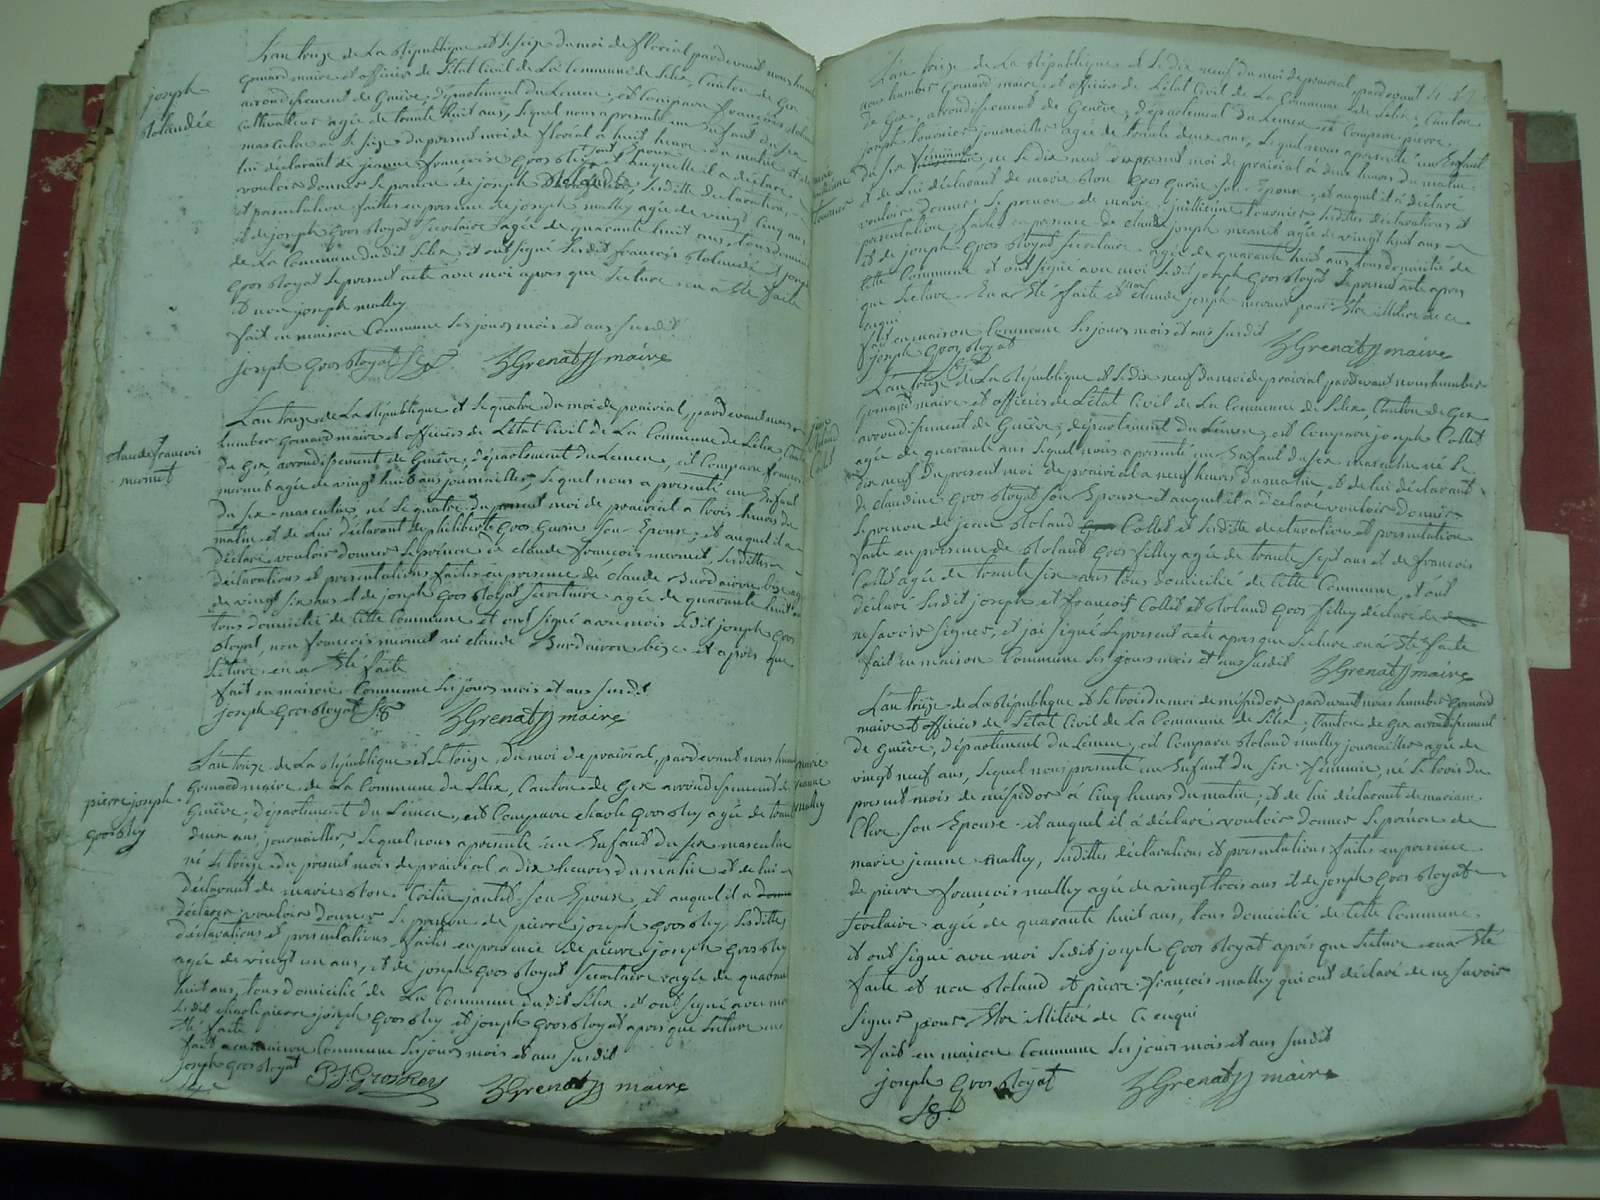 joseph
Rolandée
L'an treize de la République et le seize du moi de floréal pardevant nous humb
Grenard maire et officier de l'état Civil de la Commune de Lelex, Canton de Gex
arrondissement de Genève, département du Leman, est Comparu françois Roland
Cultivateur agée de trente huit ans, lequel nous a presenté un Enfant du sex
masculin né le seize du present moi de floréal à huit heure du matin et de
lui déclarant de jeanne françoise Gros bley son Epouse et auquelle il a déclaré
vouloir donner le prenom de joseph Rolandée, lesditte déclaration
et presentation faittes en presence de joseph malley agée de vingt cinq ans
et de joseph Gros Royat Secretaire agée de quarante huit ans, tous domicilié
de la Commune dudit Lelex et ont signé ledit françois Rolandée et joseph
Gros Royat le present acte avec moi apres que lecture en a Eté faite
et non joseph malley
fait en maison Commune les jours mois et ans susdit
joseph Gros Royat HGrenard maire
claude francois
mermet
L'an treize de la République et le quatre du moi de prairial, pardevant nous
humber Grenard maire et officier de l'état Civil de la Commune de Lelex, Canton
de Gex arrondissement de Genève, département du Leman, est Comparu francois
mermet agée de vingt huit ans journaillier, lequel nous a presenté un Enfant
du sex masculin né le quatre du present moi de prairial a trois heures du
matin et de lui déclarant de philiberte Gros Gurin son Epouse, et auquel il a
déclaré vouloir donner le prénom de claude françois mermet, lesdittes
déclarations et presentations faites en presence de claude Burdairon bize agé
de vingt six ans et de joseph Gros Royat secretaire agée de quarante huit ans
tous domicilié de cette Commune et ont signé avec mois ledit joseph Gros
Royat, non francois mermet ni claude Burdairon bize et après que
lecture en a Eté faite
fait en maison Commune les jours mois et ans susdit
joseph Gros Royat HGrenard maire
pierre joseph
gros bley
L'an treize de la République et le treize du moi de prairial, pardevant nous humb
Grenard maire de la Commune du Lelex, Canton de Gex arrondissement de
Genève, département du Léman, est Comparu charle Gros bley agée de trente
deux ans, journaillier, lequel nous a presenté un Enfant du sex masculin
né le treize du present mois de prairial a dix heures du matin et de lui
déclarant de marie Rose Cecilie jantet son Epouse, et auquel il a
déclaré vouloir donner le prenom de pierre joseph Gros bley, lesdittes
déclarations et presentations faites en presence de pierre joseph Gros bley
agée de vingt un ans, et de joseph Gros Royat secretaire agée de quarante
huit ans, tous domicilié de la Commune dudit Lelex et ont signé avec moi
ledit charle pierre joseph Gros bley et joseph Gros Royat apres que lecture en a
Eté faite
fait en maison Commune les jours mois et ans susdit
joseph Gros Royat P J Gros Rey HGrenard maire
L'an treize de la République et le dix neuf du moi de prairial, pardevant
nous humber Grenard maire et officier de l'état Civil de la Commune de Lelex, Canton
de Gex, arrondissement de Genève, département du Leman est Comparu pierre
joseph tournier journaillier agée de trente deux ans, lequel nous a presenté un Enfant
du sex féminin né le dix neuf du present moi de prairial à deux heures du matin
et de lui déclarant de marie Rose Gros Gurin son Epouse, et auquel il a déclaré
vouloir donner le prenom de marie juillienne tournier, lesdittes déclarations et
presentation faites en presence de claude joseph mermet agée de vingt huit ans
et de joseph Gros Royat secretaire agée de quarante huit ans, tous domicilié de
cette Commune et ont signé avec moi ledit joseph Gros Royat le present acte apres
que lecture En a Eté faite et non claude joseph mermet pour Etre illitéré de ce
enqui
fait en maison Commune les jours mois et ans susdit
joseph Gros Royat HGrenard maire
jean
Roland
Collet
L'an treize de la République et le dix neuf du moi de prairial, pardevant nous humber
Grenard maire et officier de l'état Civil de la Commune de Lelex, Canton de Gex
arrondissement de Genève, département du Léman, est Comparu joseph Collet
agée de quarante ans lequel nous a presenté un Enfant du sex masculin né le
dix neuf du present moi de prairial a neuf heures du matin et de lui déclarant
de claudine Gros Royat son Epouse et auquel il a déclaré vouloir donner
le prenom de jean Roland Collet et lesditte declaration et presentation
faite en presence de Roland Gros filley agée de trente sept ans et de francois
Collet agée de trente six ans tous domicilié de cette Commune, et ont
déclaré ledit joseph et francois Collet et Roland Gros filley déclaré de
ne savoir signer, et j'ai signé le present acte apres que lecture en a Eté faite
fait en maison Commune les jours mois et ans susdit HGrenard maire
marie
jeanne
malley
L'an treize de la République et le trois du moi de méssidor pardevant nous humber Grenard
maire et officier de l'état Civil de la Commune de Lelex, Canton de Gex arrondissement
de Genève, département du Leman, est Comparu Roland malley journaillier agée de
vingt neuf ans, lequel nous presente un Enfant du sex féminin, né le trois du
present mois de méssidor à cinq heures du matin, et de lui déclarant de mariane
Clere son Epouse et auquel il a déclaré vouloir donner le prenom de
marie jeanne malley, lesdittes déclarations et presentations faites en presence
de pierre françois malley agée de vingt trois ans et de joseph Gros Royat
secretaire agée de quarante huit ans, tous domicilié de cette Commune,
et ont signé avec moi ledit joseph Gros Royat après que lecture en a Eté
faite et non Roland et pierre françois malley qui ont déclaré de ne savoir
signer pour Etre illitéré de ce enqui
fait en maison Commune les jours mois et ans susdit
joseph Gros Royat HGrenard maire